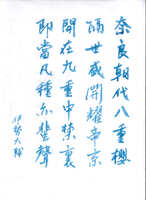 奈良朝代八重櫻
隔世盛開耀帝京
開在九重申禁裏
即當凡種亦蜚聲
伊勢大輔